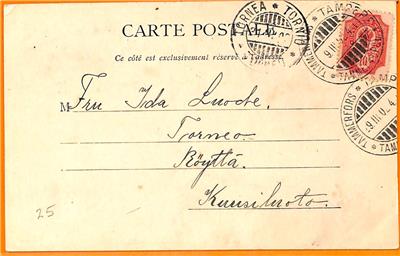 CARTE POSTALE
Ce côté est exclusivement réservé à l'adresse.
TORNEÅ * TORNIO
TAMMERFORS * TAMPERE
9.III.0
TAMMERFORS
9.III.0
M Fru Ida
Torneo
Röyttä
Kuusiluoto.
25